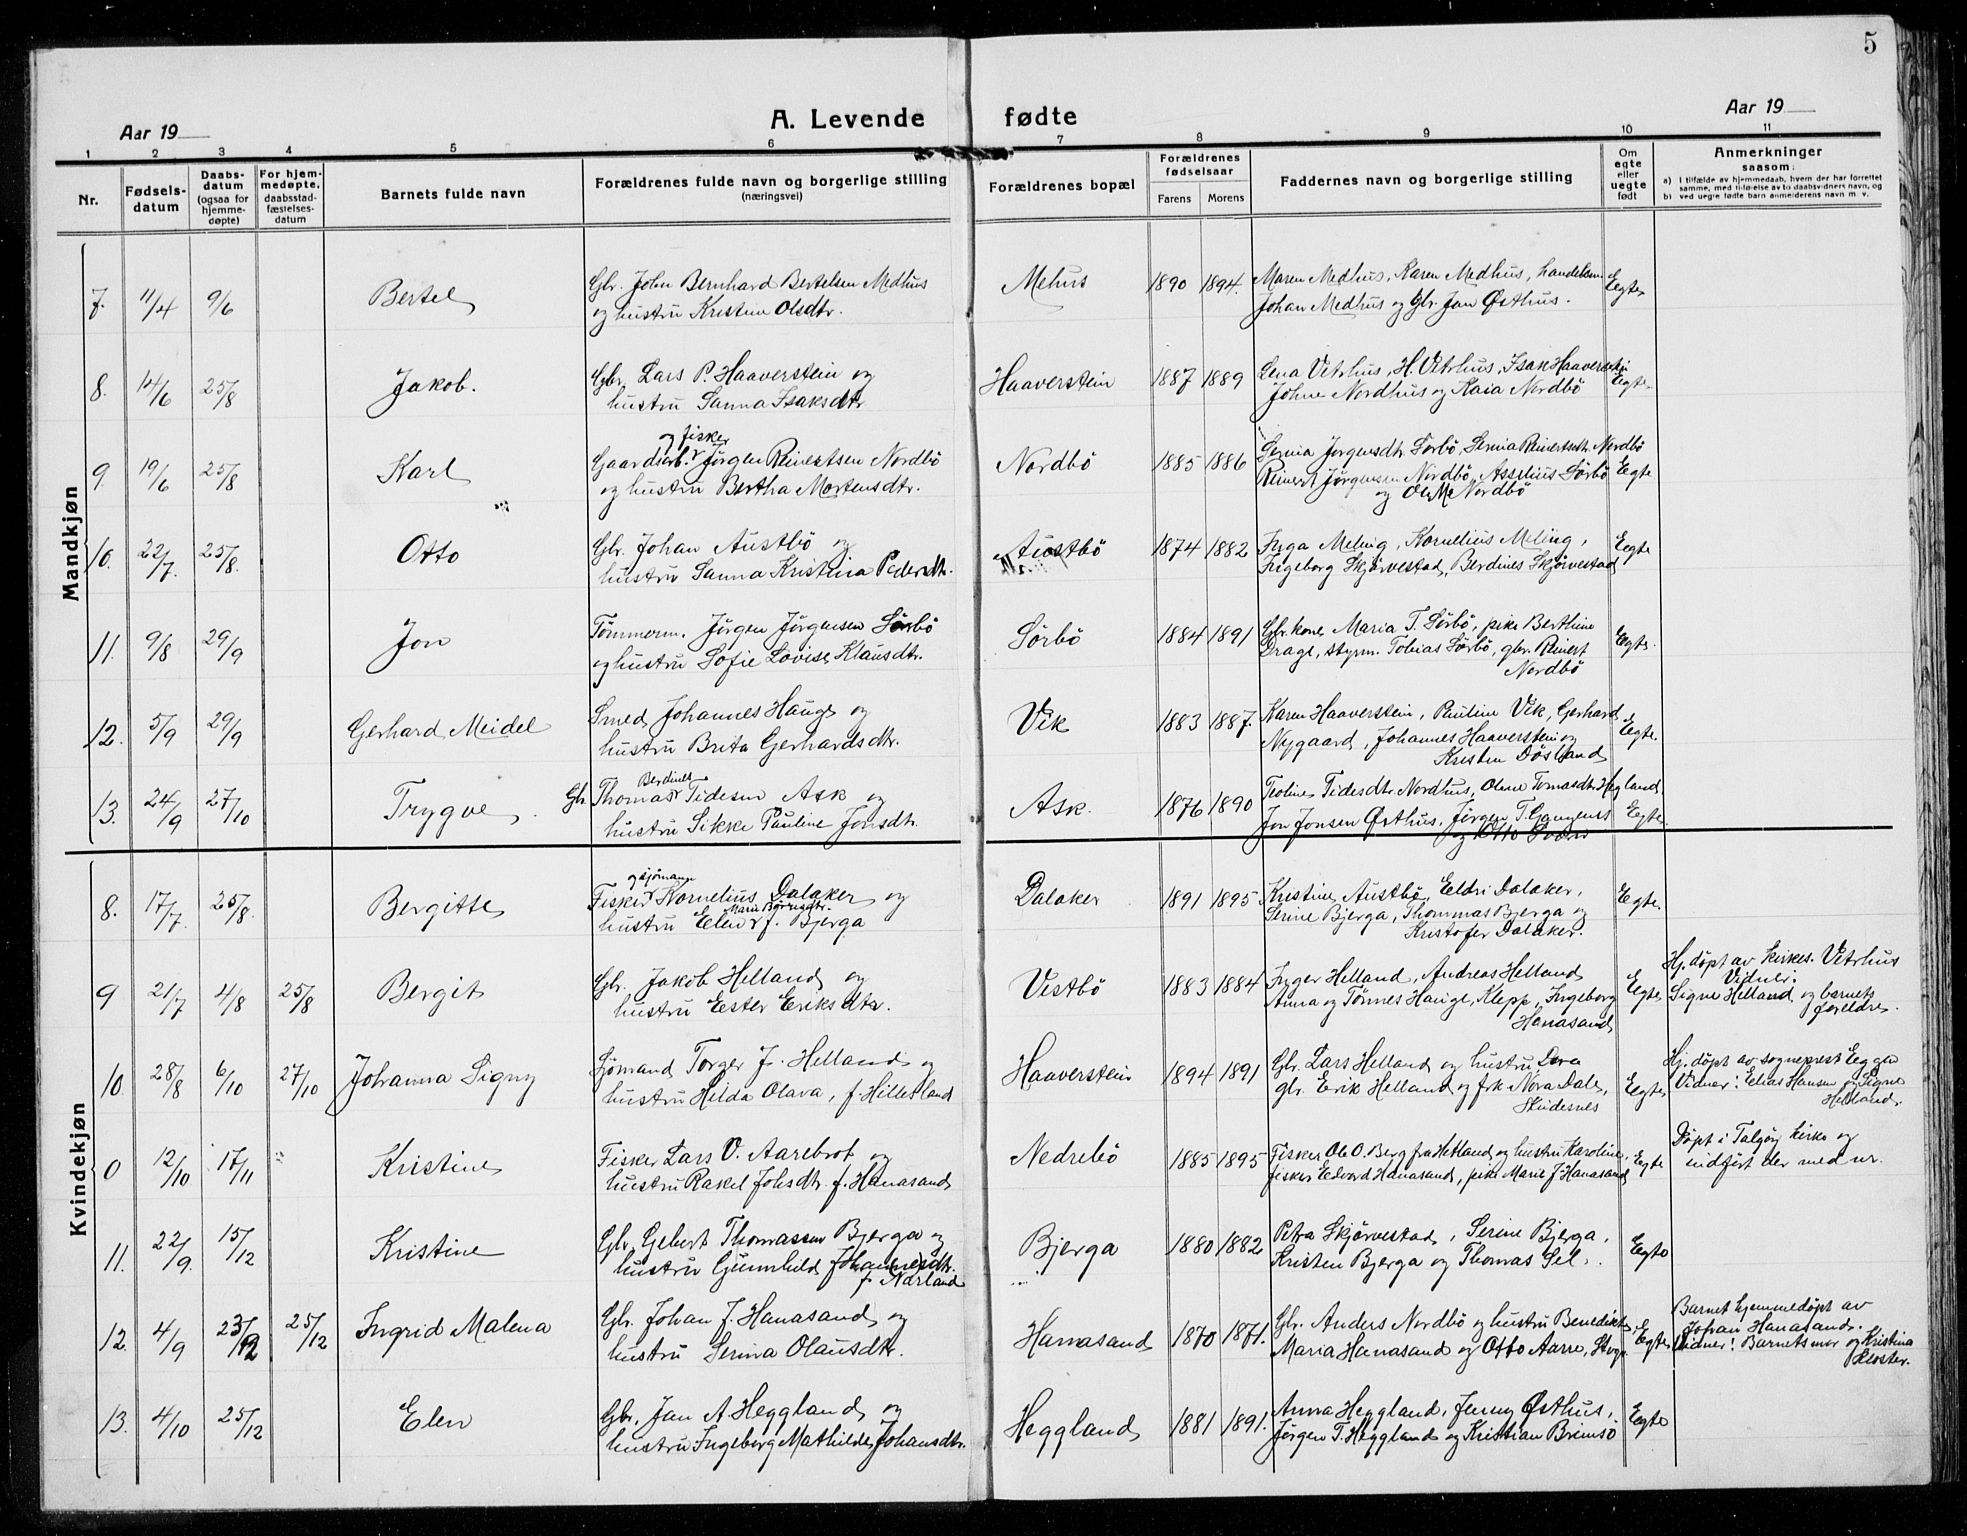 5
Aar 19
A. Levende fødte
Aar 19
1 2 3 4 5 6 7 8 9 10 11
Nr.
Fødsels-
datum
Daabs-
datum
(ogsaa for
hjemme-
døpte)
For hjem-
medøpte,
daabsstad-
fæstelses-
datum
Barnets fulde navn
Forældrenes fulde navn og borgerlige stilling
(næringsvei)
Forældrenes bopæl
Forældrenes
fødselsaar
Farens Morens
Faddernes navn og borgerlige stilling
Om
egte
eller
uegte
født
Anmerkninger
saasom:
a) I tilfælde av hjemmedaab, hvem der har forrettet
samme, med tilføielse av to daabsvidners navn, og
b) ved uegte fødte barn anmelderens navn m. v.
Mandkjøn
7. 11/4 9/6 Bertel
Gbr. John Bernhard Bertelsen Medhus
og hustru Kristine Olsdtr.
Mehus 1890 1894.
Maren Medhus, Karen Medhus, handelsm.
Johan Medhus og Gbr. Jon Østhus.
Egte
8. 14/6 25/8 Jakob.
Gbr. Lars P. Haaverstein og
hustru Sanna Isaksdtr
Haaverstein 1887 1889
Lena Vitrhus, H. Vitrhus, Isak Haaverstein
Johne Nordhus og Kaia Nordbö
Egte
9 19/6 25/8 Karl
og fisker
Gaardsarb. Jørgen Reinertsen Nordbö
og hustru Bertha Mortensdtr.
Nordbö 1885 1886
Serina Jørgensdtr. Sörbö, Serina Reinertsdtr. Nordbö
Reinert Jørgensen Nordbö, Asselius Sörbö
og Ole M. Nordbö
Egte
10. 22/7. 25/8. Otto
Gbr. Johan Austbö og
hustru Sanna Kristina Pedersdtr.
Austbö 1874 1882
Inga Meling, Kornelius Meling,
Ingeborg Skjörvestad, Berdines Skjörvestad
Egte
11. 9/8 29/9 Jon
Tömmerm. Jørgen Jørgensen Sörbö
og hustru Sofie Lovise Klausdtr.
Sörbö 1884 1891
Gbr. kone Maria T. Sörbö, pike Berthine
Drage, styrm. Tobias Sörbö, gbr. Reinert
Nordbö
Egte.
12. 5/9 29/9 Gerhard Meidel
Smed Johannes Hauge og
hustru Brita Gerhardsdtr.
Vik 1883 1887.
Karen Haaverstein, Pauline Vik, Gerhard
Nygaard, Johannes Haaverstein og
Kristen Døsland
Egte.
13. 24/9 27/10 Trygve
Berdines
Gbr. Thomas Tidesen Ask og
hustru Sikke Pauline Jonsdtr.
Ask. 1876 1890
Teoline Tidesdtr. Nordhus, Olene Tomasdtr. Hegland,
Jon Jonsen Østhus, Jørgen T.
og Otto
Egte.
Kvindekjøn
8. 17/7. 25/8. Bergitte
og sjømann
Fisker Kornelius Dalaker og
Marie Børresdtr.
hustru Elen f. Bjerga
Dalaker 1891 1895
Kristine Austbö, Eldri Dalaker,
Serine Bjerga, Thommas Bjerga og
Kristofer Dalaker.
Egte.
9 21/7 4/8 25/8 Bergit
Gbr. Jakob Helland og
hustru Ester Eriksdtr.
Vestbö 1883 1884
Inger Helland, Andreas Helland
Anna og Tönnes Hauge, Klepp, Ingeborg
Hanasand
Egte
Hj. döpt av kirkes. Vitrhus
Vidner:
Signe Helland og barnets
foreldre.
10 28/8 6/10 27/10 Johanna Signy
Sjömand Torger J. Helland og
hustru Hilda Olava, f. Hilletland
Haaverstein 1894 1891
Gbr. Lars Helland og hustru Dora
gbr. Erik Helland og frk Nora Dale,
Skudesnes
Egte
Hj. döpt av sogneprest Egge
Vidner: Elias Hansen og Signe
Helland.
0 12/10 17/11 " Kristine
Fisker Lars O. Aarebrot og
hustru Rakel Johsdtr. f. Hanasand
Nedrebö 1885 1895
Fisker Ole O. Berg fra Hetland og hustru Karoline,
fisker Edvard Hanasand, pike Marie J. Hanasand
Egte
Döpt i Talgöy kirke og
indfört der med nr.
11. 22/9. 15/12 Kristine
Gbr. Gebert Thomassen Bjerga og
hustru Gunnhild Johannesdtr.
f. Nærland
Bjerga 1880 1882
Petra Skjörvestad, Serine Bjerga,
Kristen Bjerga og Thomas Sel.
Egte
12. 4/9 23/12 25/12 Ingrid Malena
Gbr. Johan J. Hanasand og
hustru Serina Olausdtr.
Hanasand 1870 1871.
Gbr. Anders Nordbö og hustru Benedikte,
Maria Hanasand og Otto Aarre,
Egte
Barnet hjemmedöpt av
Johan Hanasand.
Vidner: Barnets mor og Kristina
Kloster.
13. 4/10 25/12 Elen
Gbr. Jan A Heggland og
hustru Ingeborg Mathilde Johansdtr.
Heggland 1881 1891.
Anna Heggland, Jenny Østhus,
Jørgen T. Heggland og Kristian Brimsö
Egte